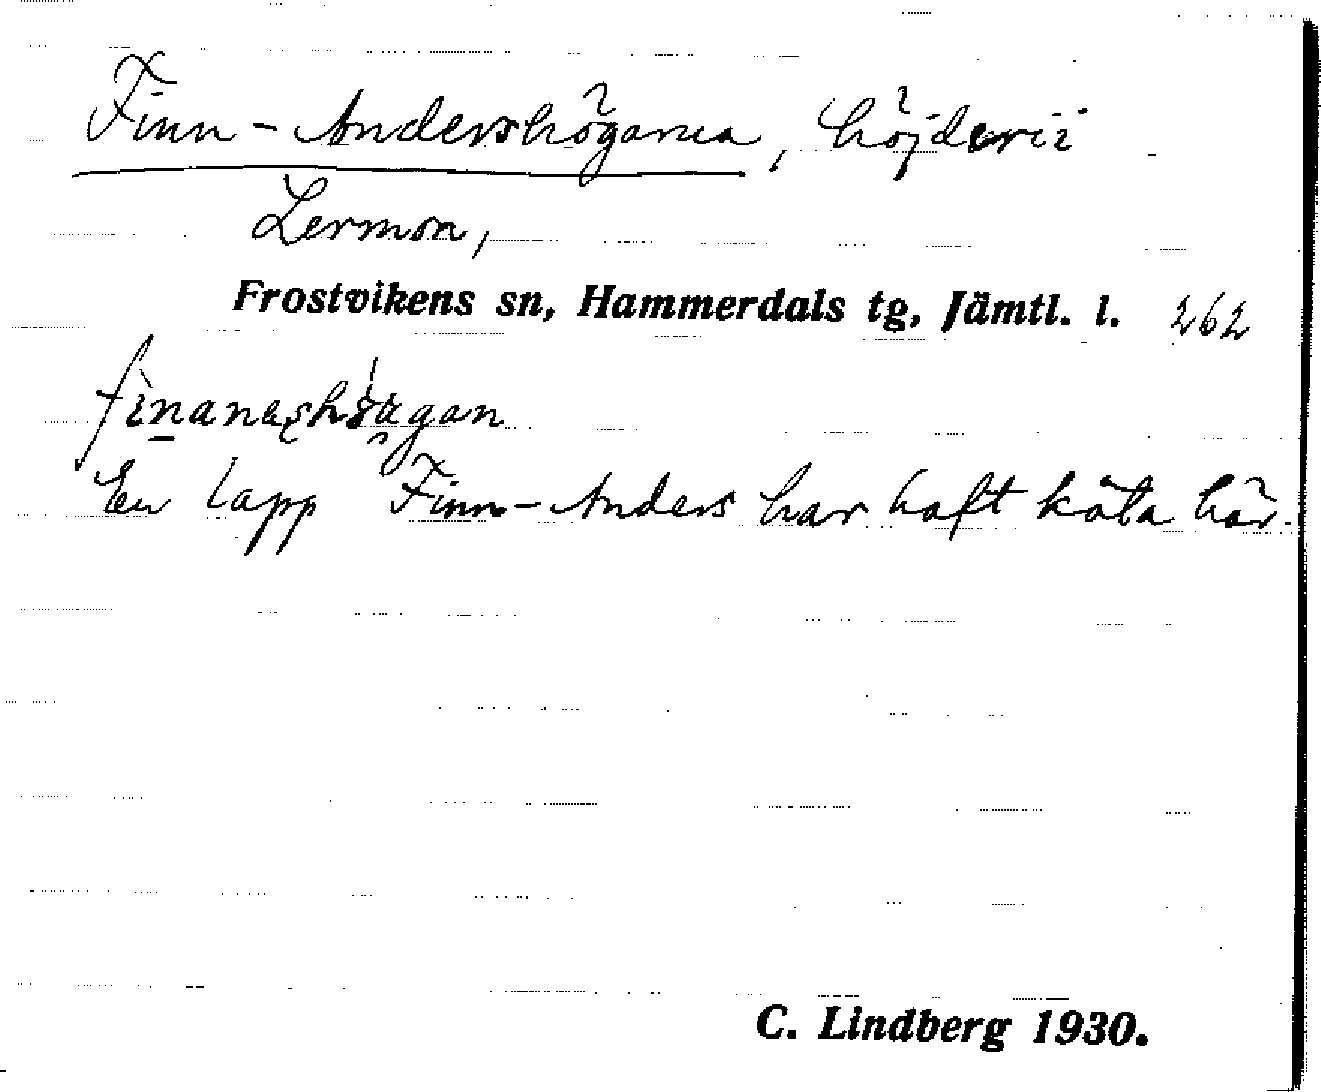 Finn-Andershögarna, höjder i
Lermon,
Frostvikens sn, Hammerdals tg, Jämtl. l. 262
En lapp Finn-Anders har haft kåta här.
C. Lindberg 1930.